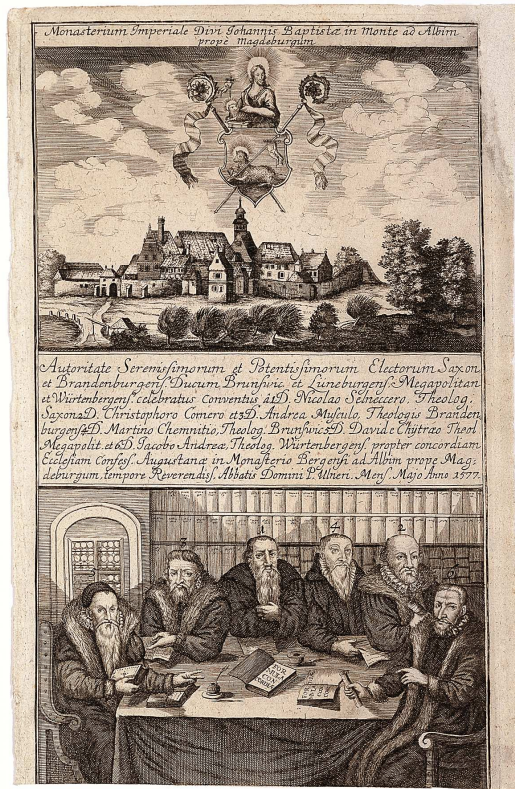 Monasterium Imperiale Divi Johannis Baptistæ in Monte ad Albim
prope Magdeburgum
Autoritate Serenissimorum et Potentissimorum Electorum Saxon
et Brandenburgens. Ducum Brunsvic. et Luneburgens. Megapolitan
et Würtenbergens. celebratus Conventus à 1 D. Nicolao Selneccero, Theolog.
Saxon 2 D. Christophoro Cornero et 3 D. Andrea Musculo, Theologis Branden
burgens 4 D. Martino Chemnitio, Theolog. Brunsvic 5 D. Davide Chÿtræo Theol
Megapolit. et 6 D. Jacobo Andreæ, Theolog. Würtenbergens. propter concordiam
Ecclesiam Confess. Augustanæ in Monasterio Bergensi ad Albim prope Mag-
deburgum, tempore Reverendiss. Abbatis Domini P. Ulneri. Mens. Majo Anno 1577.
3
1
4
2
6
FOR
MULA
CON
CORD